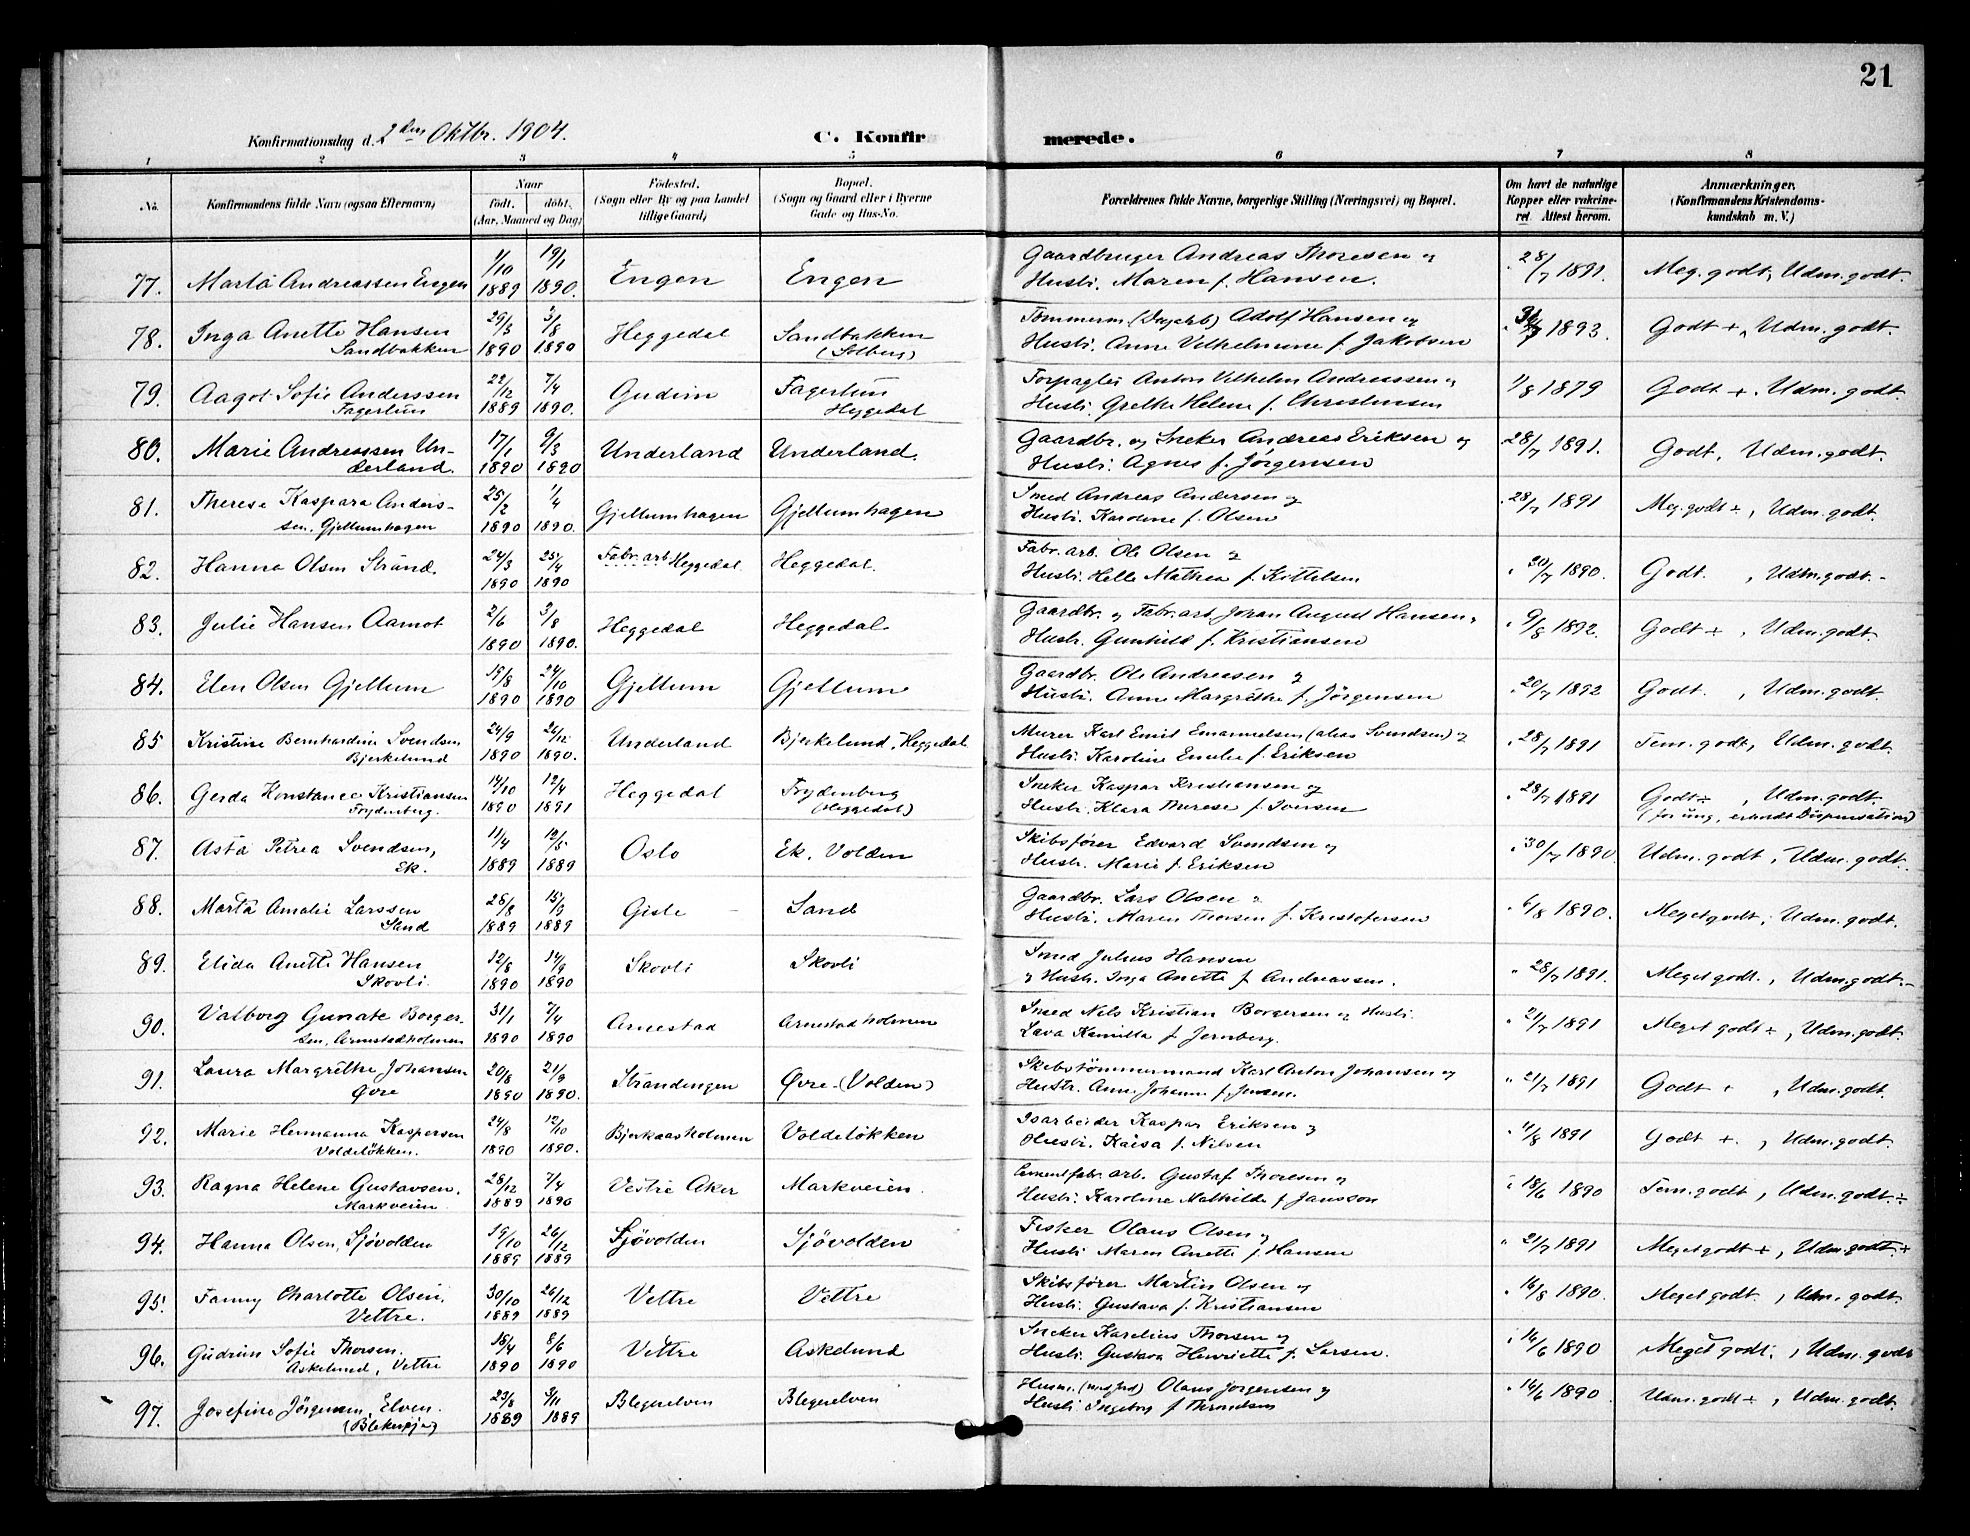 21
Konfirmationsdag d. 2den Oktbr. 1904.
C. Konfirmerede.
1 2 3 4 5 6 7 8
No. Konfirmandens fulde Navn (ogsaa Efternavn) Naar født. døbt. (Aar, Maaned og Dag) Fødested. (Sogn eller By og paa Landet tillige Gaard) Bopæl. (Sogn og Gaard eller i Byerne Gade og Hus-No. Forældrenes fulde Navne, borgerlige Stilling (Næringsvei) og Bopæl. Om havt de naturlige Kopper eller vakcineret Attest herom. Anmærkninger. (Konfirmandens Kristendomskundskab m. V.)
77. Marta Andreassen Engen 1/10 1889 19/1 1890. Engen Engen Gaardbruger Andreas Thoresen og Hustr. Maren f. Hansen. 28/7 1891. Meg. godt, Udm. godt.
78. Inga Anette Hansen Sandbakken 29/3 1890 3/8 1890 Heggedal Sandbakken (Solberg) Tømmerm. (Dagarb) Adolf Hansen og Hustr. Anne Vilhelmine f. Jakobsen 1893. Godt +, Udm. godt.
79. Aagot Sofie Anderssen Fagerlun 22/12 1889 7/4 1890. Gudim Fagerlun Heggedal Forpagter Anton Vilhelm Andreassen og Hustr. Grethe Helene f. Christensen 1/8 1879 Godt +. Udm. godt.
80. Marie Andreassen Underland. 17/1 1890 9/3 1890 Underland Underland. Gaardbr. og Sneker Andreas Eriksen og Hustr. Agnes f. Jørgensen 28/7 1891. Godt, Udm. godt.
81. Therese Kaspara Anderssen, Gjellumhagen 25/2 1890 1/4 1890. Gjellumhagen Gjellumhagen Smed Andreas Andersen og Hustr. Karoline f. Olsen 28/7 1891 Meg. godt ÷, Udm. godt.
82. Hanna Olsen Strand. 24/3 1890 25/4 1890 Fabr. arb. Heggedal. Heggedal. Fabr. arb. Ole Olsen og Hustr. Helle Mathea f. Kittelsen 30/7 1890. Godt. , Udm. godt.
83. Julie Hansen Aamot 2/6 1890 3/8 1890. Heggedal Heggedal. Gaardbr. og Fabr. arb. Johan August Hansen, Hustr. Gunhild f. Kristiansen 9/8 1892. Godt ÷, Udm. godt.
84. Elen Olsen Gjellum 19/8 1890 24/10 1890 Gjellum Gjellum Gaardbr. Ole Andreasen og Hustr. Anne Margrethe f. Jørgensen 20/7 1892 Godt. , Udm. godt.
85 Kristine Bernhardine Svendsen Bjerkelund 24/9 1890 26/12 1890. Underland Bjerkelund, Heggedal Murer Karl Emil Emanuelsen (alias Svendsen) og Hustr. Karoline Emelie f. Eriksen 28/7 1891 Tem. godt, Udm. godt.
86. Gerda Konstance Kristiansen Frydenberg. 14/10 1890 12/4 1891 Heggedal Frydenberg (Heggedal) Sneker Kaspar Kristiansen og Hustr. Klara Therese f. Iversen 28/7 1891 Godt ÷, Udm. godt. (for ung, erholdt Dispensation)
87. Asta Petrea Svendsen, Ek. 11/4 1889 12/5 1889 Oslo Ek. Volden Skibsfører Edvard Svendsen og Hustr. Marie f. Eriksen 30/7 1890. Udm. godt, Udm. godt.
88. Marta Amalie Larssen Sand 26/8 1889 15/9 1889 Gisle Sand Gaardbr. Lars Olsen og Hustr. Maren Thorsen f. Kristofersen 6/8 1890. Meget godt, Udm. godt.
89. Elida Anette Hansen Skovli. 12/8 1890 14/9 1890 Skovli Skovli Smed Julius Hansen og Hustr. Inga Anette f. Andreassen. 28/7 1891. Meget godt., Udm. godt.
90. Valborg Gunate Borgersen, Arnestadholmen 31/1 1890 7/4 1890 Arnestad Arnestadholmen Smed Nils Kristian Borgersen og Hustr. Lava Kamilla f. Jernberg. 21/7 1891 Meget godt ÷, Udm. godt.
91. Laura Margrethe Johansen Øvre 20/8 1890 21/9 1890. Strandengen Øvre (Volden) Skibstømmermand Karl Anton Johansen og Hustr. Anne Johanne f. Jensen. 21/7 1891 Godt + , Udm. godt.
92. Marie Hermanna Kaspersen Voldeløkken. 24/8 1890 12/10 1890. Bjerkaasholmen Voldeløkken Isarbeider Kaspar Eriksen og Hustr. Kaisa f. Nilsen 11/8 1891 Godt +. , Udm. godt.
93. Ragna Helene Gustavsen. Markveien 28/12 1889 7/4 1890 Vestre Aker Markveien. Cementfabr. arb. Gustaf Thoresen og Hustr. Karoline Mathilde f. Jansson 18/6 1890 Tem. godt, Udm. godt. ÷
94. Hanna Olsen, Sjøvolden 19/10 1889 26/12 1889 Sjøvolden Sjøvolden Fisker Olaus Olsen og Hustr. Maren Anette f. Hansen 21/7 1891 Meget godt +, Udm. godt. +
95. Fanny Charlotte Olsen. Vettre. 30/10 1889 26/12 1889 Vettre Vettre Skibsfører Martin Olsen og Hustr. Gustava f. Kristiansen 16/8 1890. Meget godt. , Udm. godt.
96. Gudrun Sofie Thorsen. Askelund, Vettre 18/4 1890 8/6 1890 Vettre Askelund Sneker Karelius Thorsen og Hustr. Gustava Henriette f. Larsen. 14/6 1890 Meget godt. , Udm. godt
97. Josefine Jørgensen, Elven. 23/8 1889 3/11 1889 Blegerelven Blegerelven Husm. Olaus Jørgensen og Hustr. Ingeborg f. Throndsen 14/6 1890. Udm. godt ÷, Udm. godt.